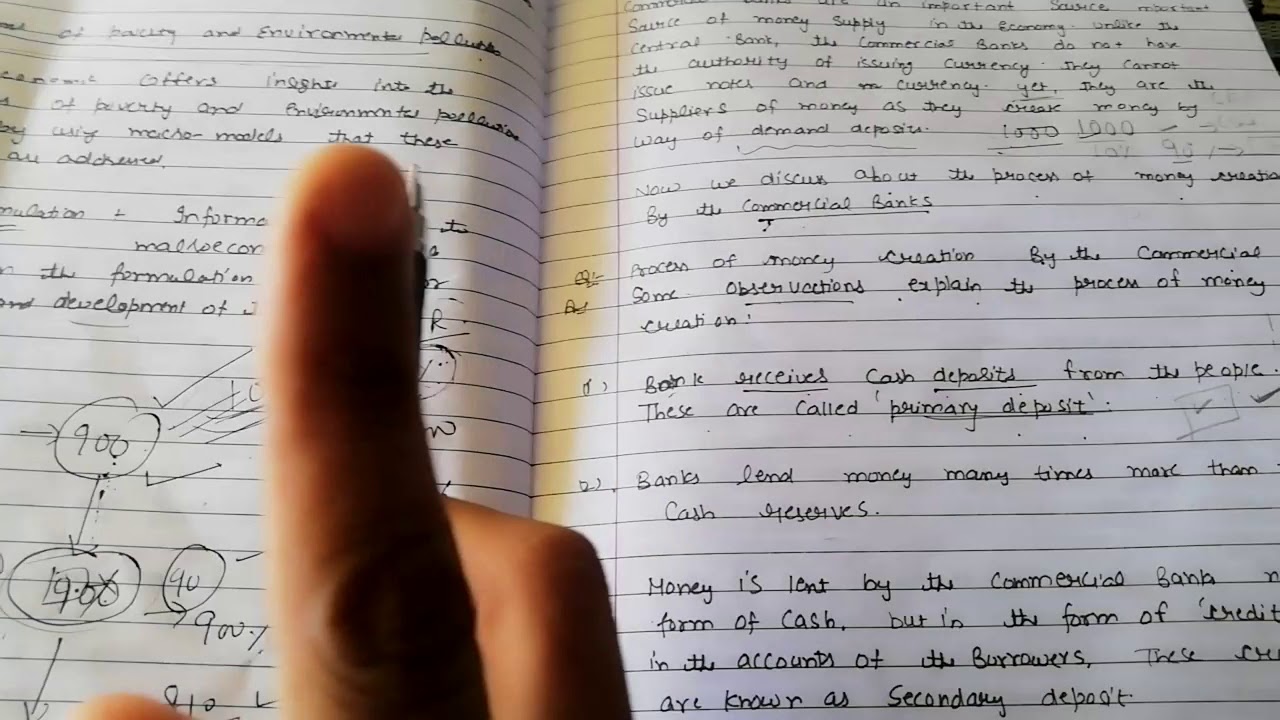 of poverty and Environmental pollution
offers insight into the
of poverty and Environmental pollution
by using macro-models that these
are addressed.
mulation Informa to
in the formulation
and development of
R
900
1900
90
900%
810
Commercial Banks are an important Source important
Source of money supply in the economy. unlike the
central Bank, the Commercial Banks do not have
the authority of issuing currency. They cannot
issue notes and currency. yet, they are the
Suppliers of money as they create money by
way of demand deposits. 1000 1000
10% 90%
Now we discuss about the process of money creation
By the Commercial Banks
Process of money creation By the Commercial
Some observations explain the process of money
creation:
1) Bank receives Cash deposits from the people.
These are called 'primary deposit'.
2) Banks lend money many times more than
Cash reserves.
Money is lent by the Commercial Bank
form of Cash, but in the form of 'credit
in the accounts of the Borrowers, These
are known as Secondary deposit.